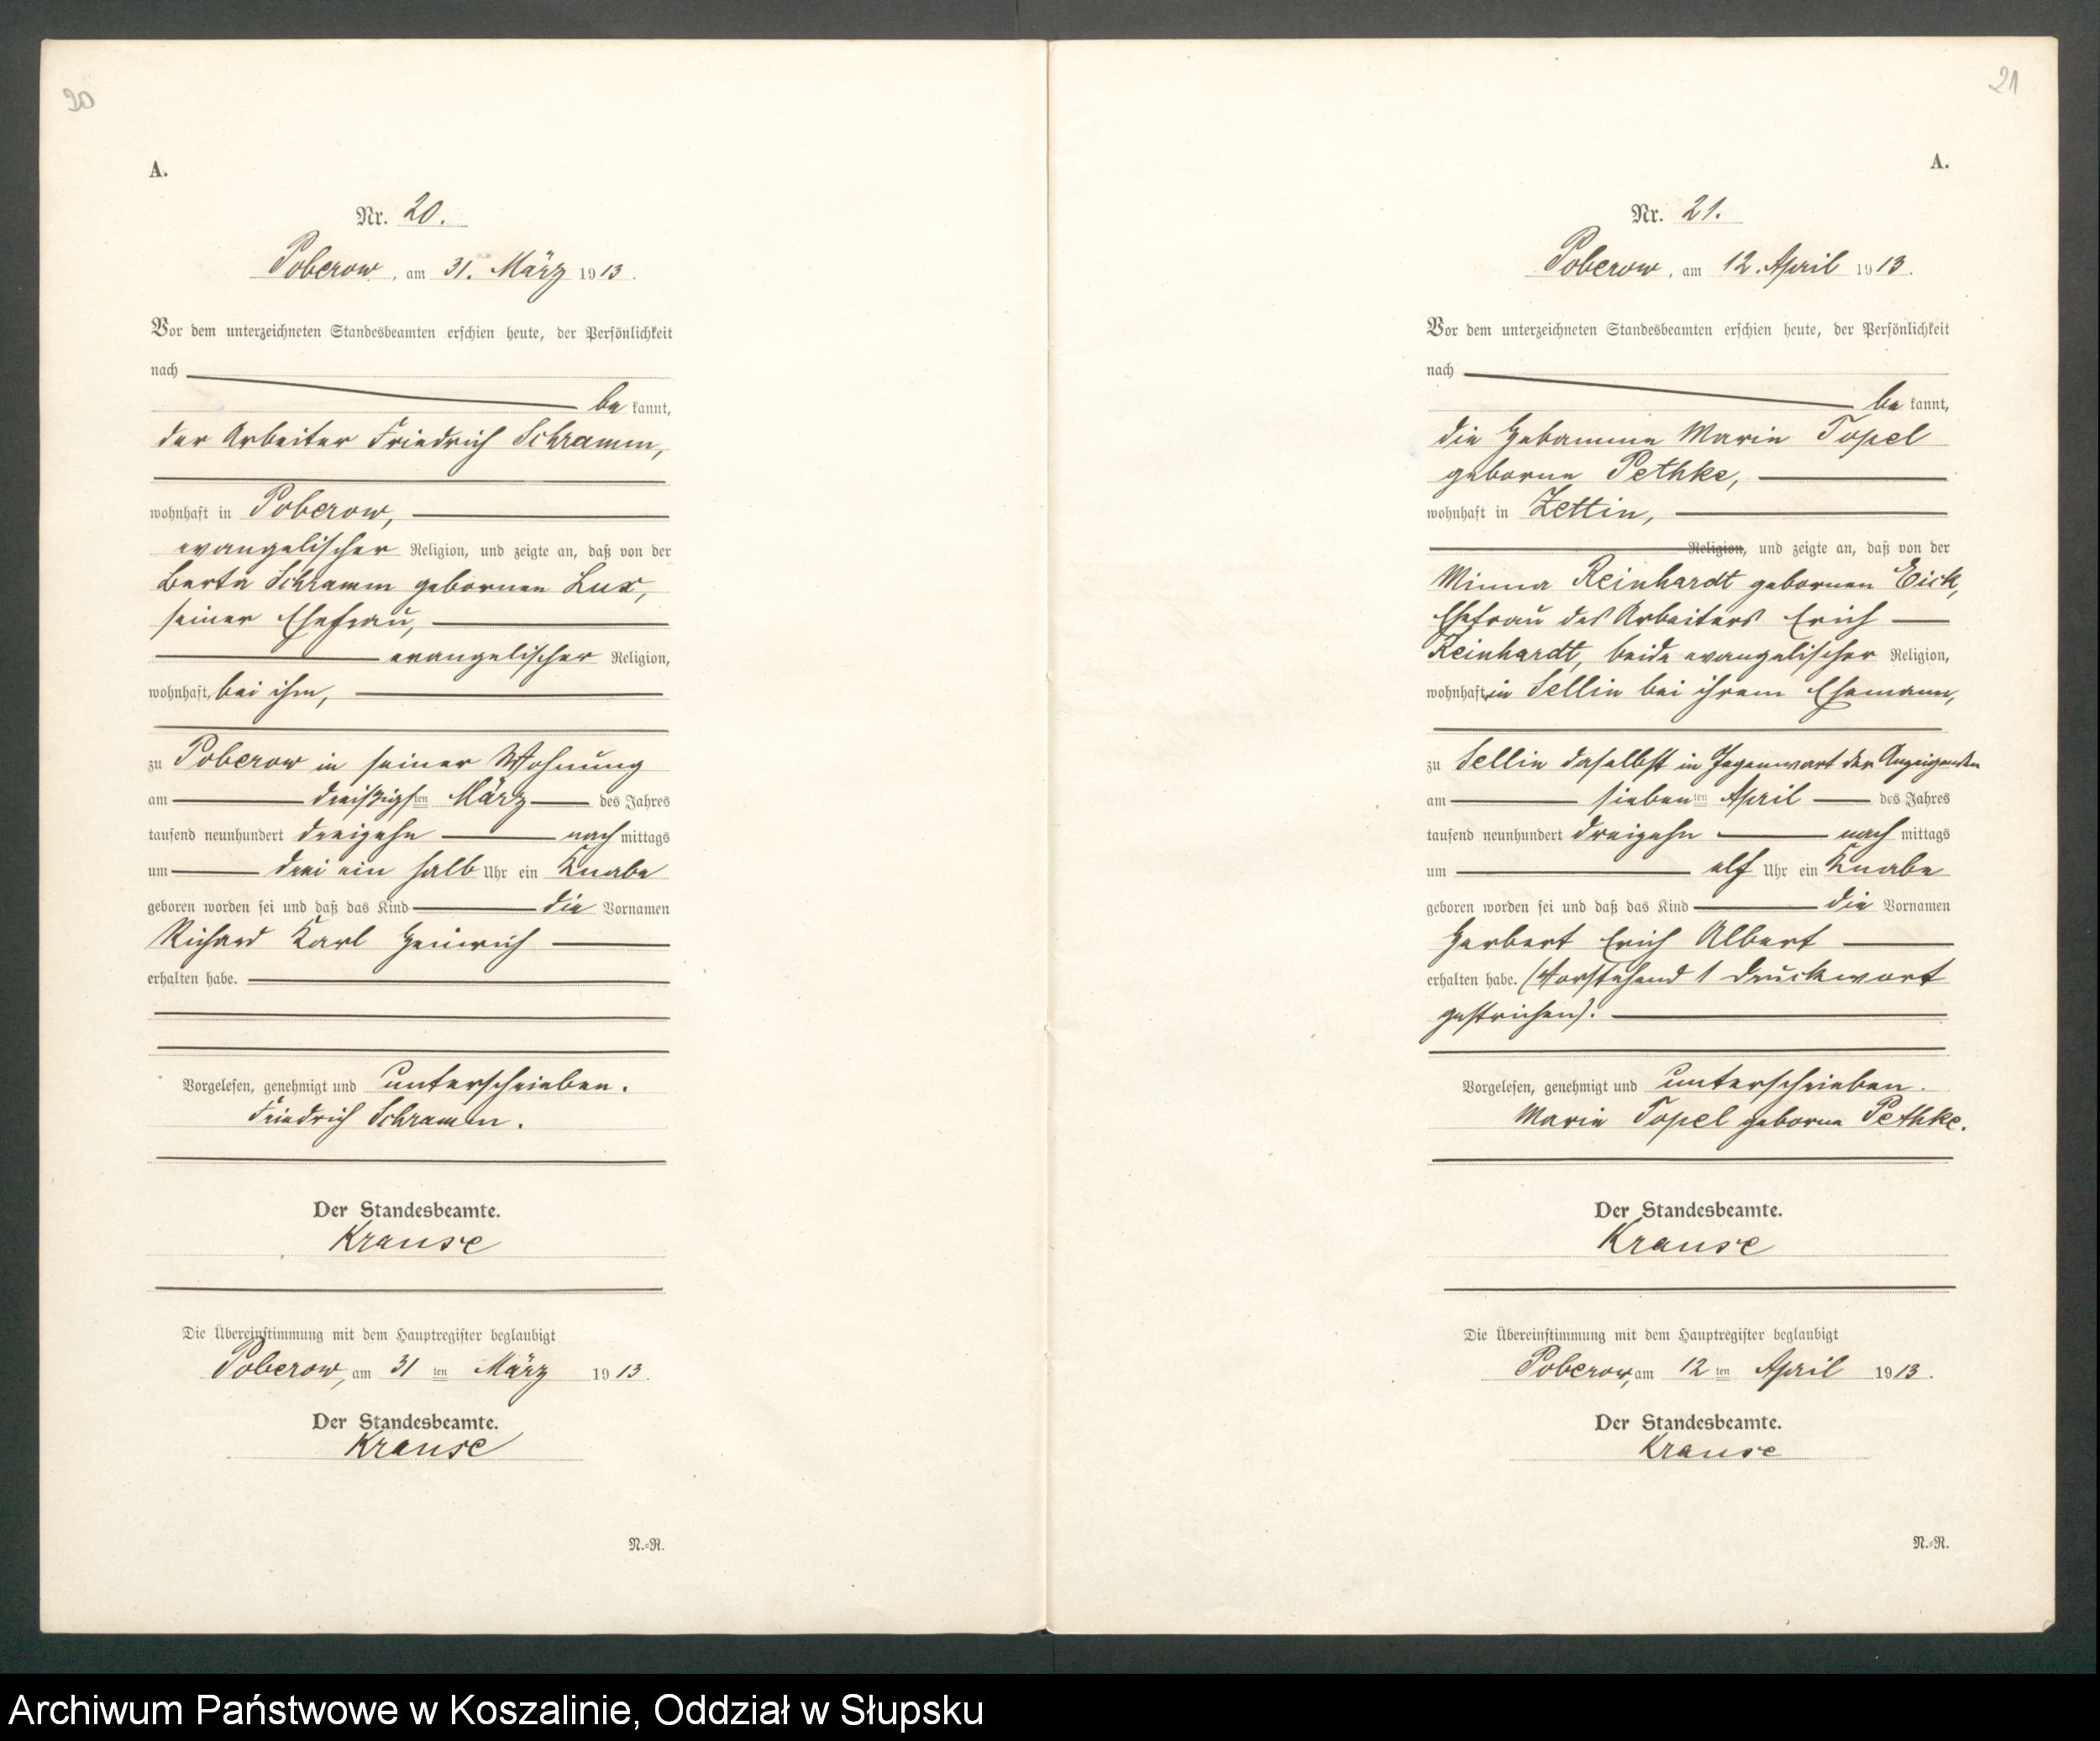 20
A.
Nr. 20.
Poberow, am 31. März 1913.
Vor dem unterzeichneten Standesbeamten erschien heute, der Persönlichkeit
nach
be kannt,
der Arbeiter Friedrich Schramm,
wohnhaft in Poberow,
evangelischer Religion, und zeigte an, daß von der
Berta Schramm gebornen Lux,
seiner Ehefrau,
evangelischer Religion,
wohnhaft, bei ihm,
zu Poberow in seiner Wohnung
am dreißigsten März des Jahres
tausend neunhundert dreizehn nach mittags
um drei ein halb Uhr ein Knabe
geboren worden sei und daß das Kind die Vornamen
Richard Karl Heinrich
erhalten habe.
Vorgelesen, genehmigt und unterschrieben.
Friedrich Schramm.
Der Standesbeamte.
Krause
Die Übereinstimmung mit dem Hauptregister beglaubigt
Poberow, am 31 ten März 1913.
Der Standesbeamte.
Krause
N.=R.
21
A.
Nr. 21.
Poberow, am 12. April 1913.
Vor dem unterzeichneten Standesbeamten erschien heute, der Persönlichkeit
nach
be kannt,
die Hebamme Marie Topel
geborne Pethke,
wohnhaft in Zettin,
Religion, und zeigte an, daß von der
Minna Reinhardt gebornen Eick,
Ehefrau des Arbeiters Erich
Reinhardt, beide evangelischer Religion,
wohnhaft in Sellin bei ihrem Ehemann,
zu Sellin daselbst in Gegenwart der Anzeigenden
am siebenten April des Jahres
tausend neunhundert dreizehn nach mittags
um elf Uhr ein Knabe
geboren worden sei und daß das Kind die Vornamen
Herbert Erich Albert
erhalten habe. (Vorstehend 1 Druckwort
gestrichen).
Vorgelesen, genehmigt und unterschrieben.
Marie Topel geborne Pethke.
Der Standesbeamte.
Krause
Die Übereinstimmung mit dem Hauptregister beglaubigt
Poberow, am 12 ten April 1913.
Der Standesbeamte.
Krause
N.=R.
Archiwum Państwowe w Koszalinie, Oddział w Słupsku